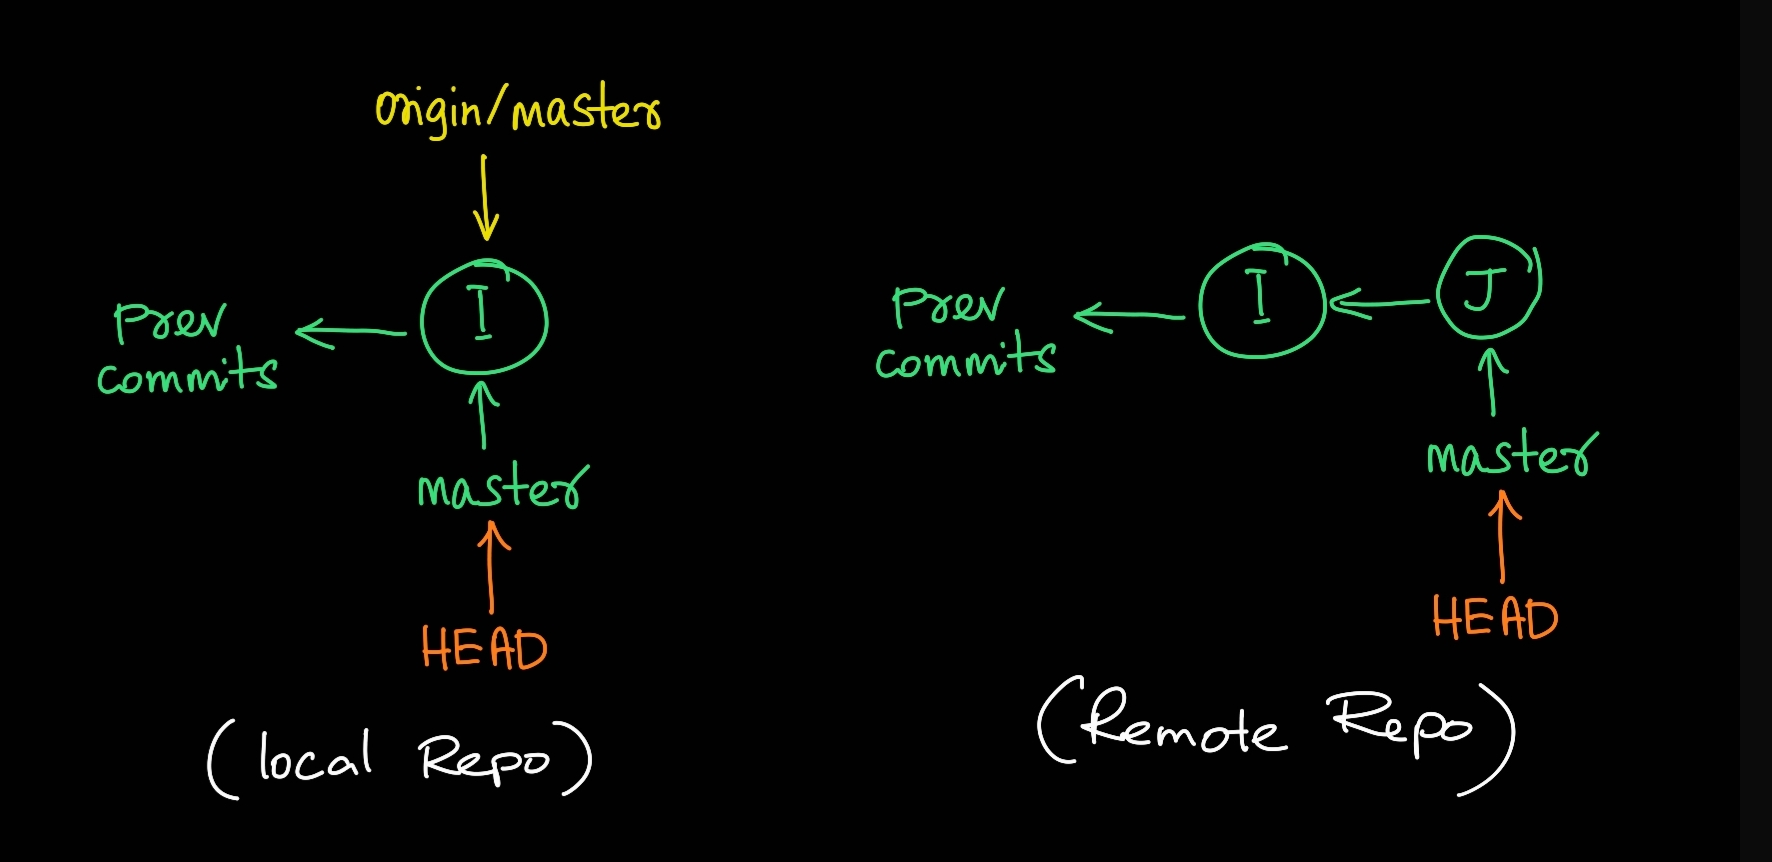 origin/master
I
Prev
commits
master
HEAD
(local Repo)
Prev
commits
I
J
master
HEAD
(Remote Repo)